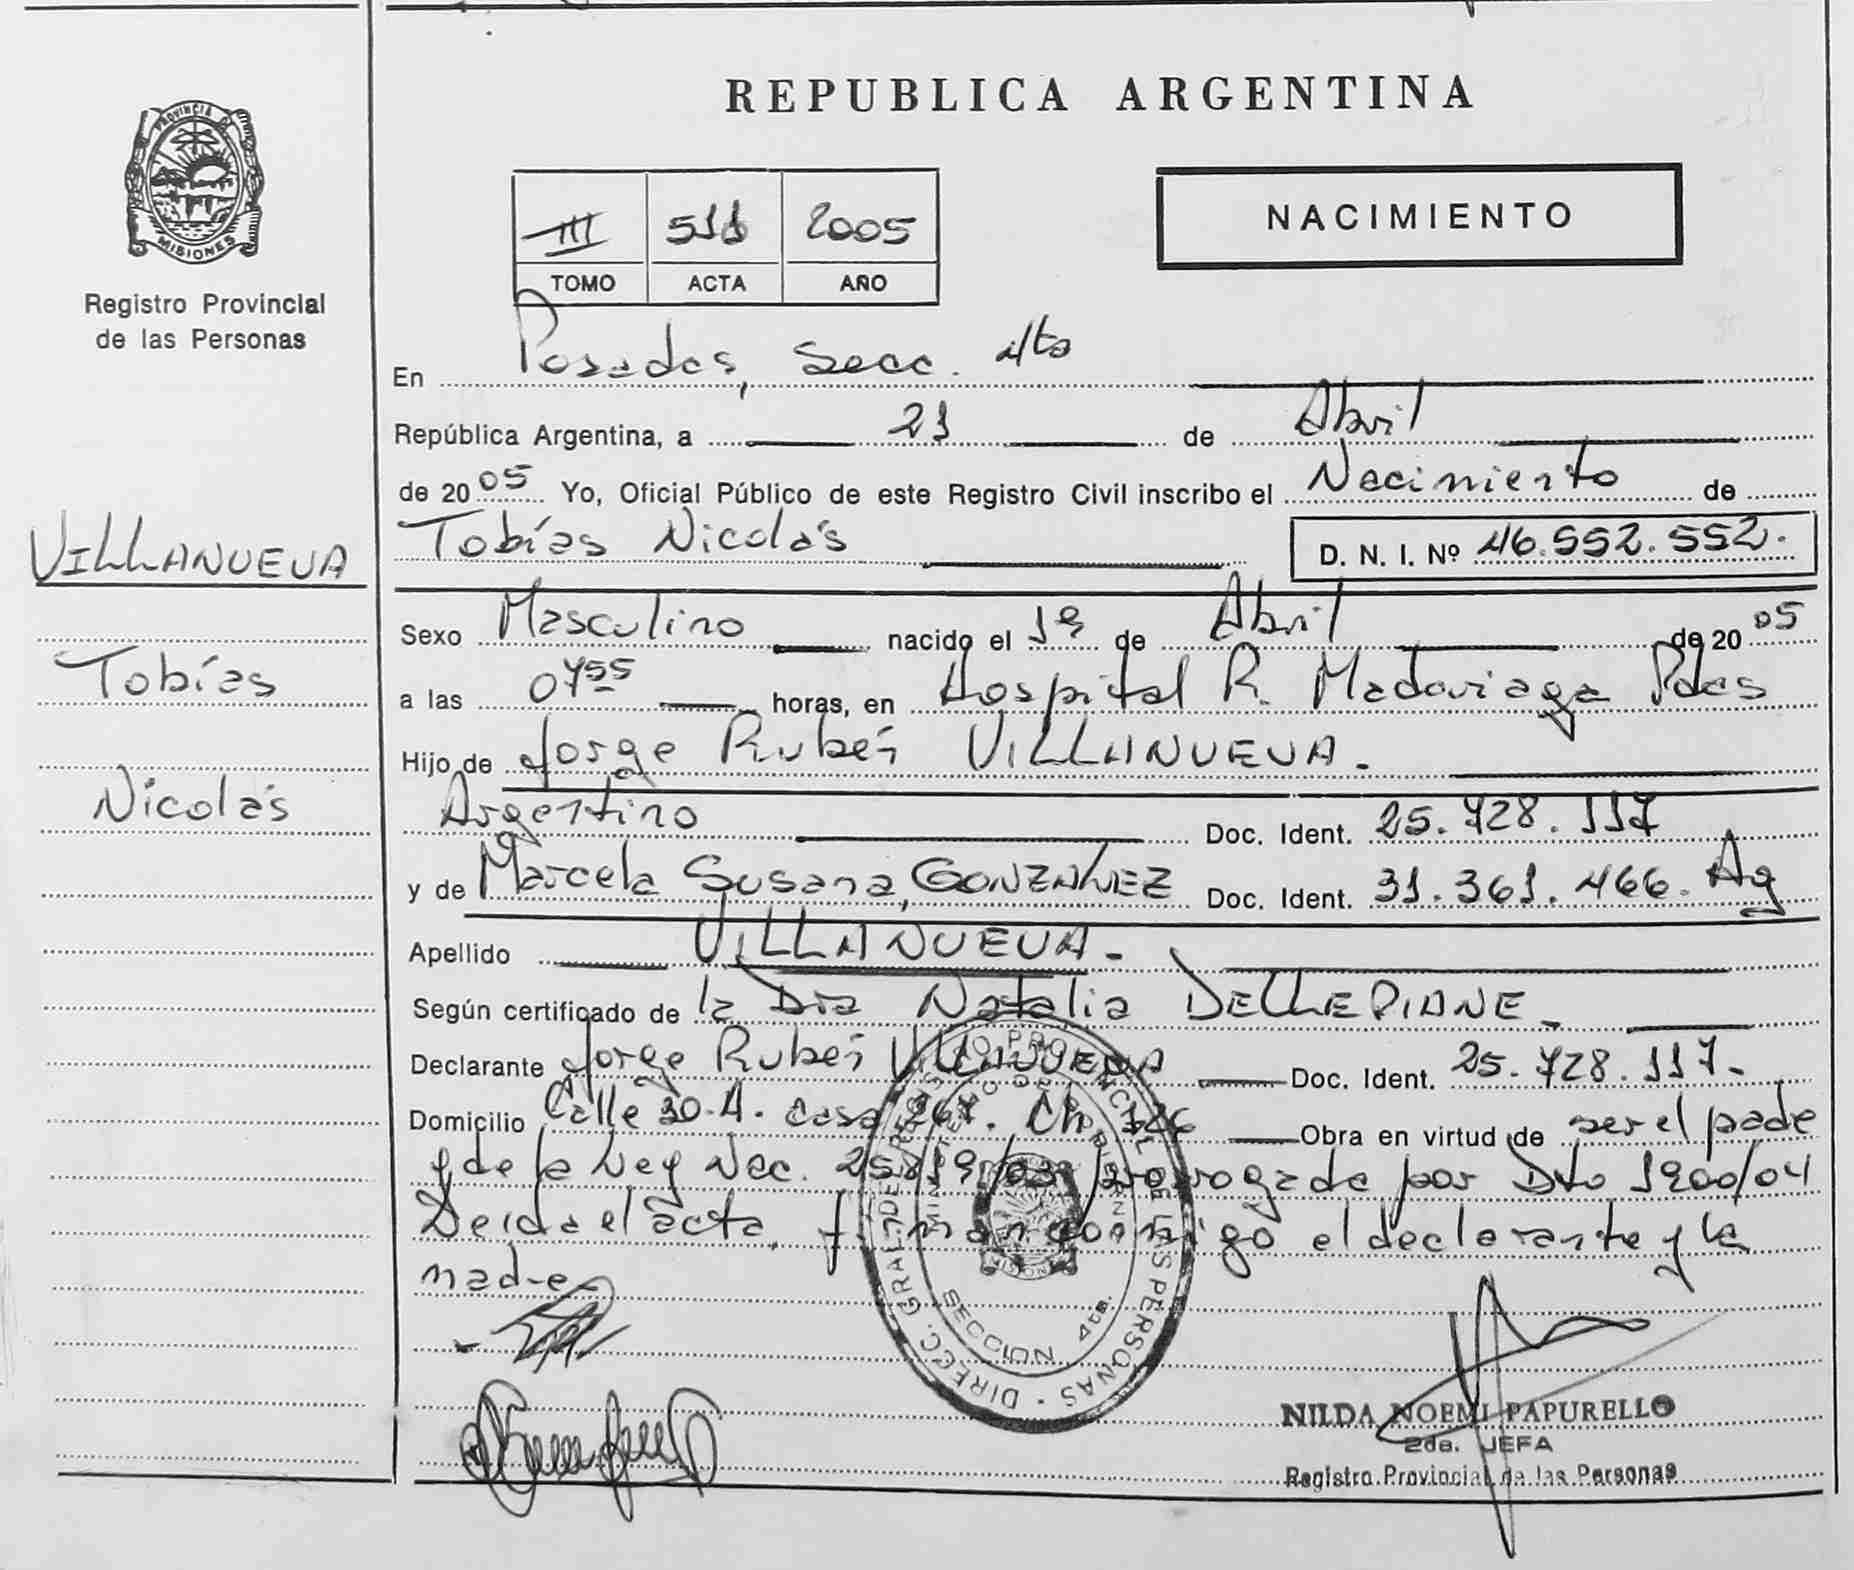 REPUBLICA ARGENTINA
PROVINCIA DE
MISIONES
Registro Provincial
de las Personas
III 511 2005
TOMO ACTA AÑO
NACIMIENTO
En Posadas, Secc. 4ta
República Argentina, a 21 de Abril
de 2005 Yo, Oficial Público de este Registro Civil inscribo el Nacimiento de
VILLANUEVA
Tobías Nicolás D. N. I. Nº 46.552.552.
Sexo Masculino nacido el 19 de Abril de 2005
Tobías
a las 0755 horas, en Hospital R. Madariaga Pdas
Hijo de Jorge Rubén VILLANUEVA.
Nicolás
Argentino Doc. Ident. 25.728.117
y de Marcela Susana, GONZALEZ Doc. Ident. 31.361.466. Ag
Apellido VILLANUEVA.
Según certificado de la Dra Natalia DELLEPIANE.
Declarante Jorge Rubén VILLANUEVA Doc. Ident. 25.728.117.
Domicilio Calle 30.A. casa 267. Ch 126 Obra en virtud de ser el padre
y de la Ley Nac. 25819/03 prorrogada por Dto 1900/04
Leida el acta, firman conmigo el declarante y la
madre
DIRECC. GRAL. DE REGISTRO PROVINCIAL DE LAS PERSONAS
SECCION 4ta.
NILDA NOEMI PAPURELLO
2da. JEFA
Registro Provincial de las Personas